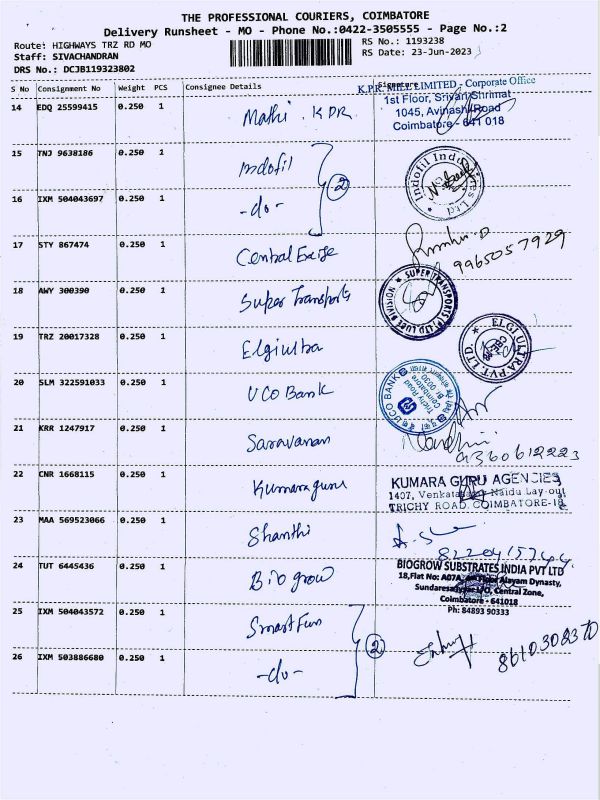 THE PROFESSIONAL COURIERS, COIMBATORE
Delivery Runsheet - MO - Phone No.:0422-3505555 - Page No.:2
Route: HIGHWAYS TRZ RD MO
RS No.: 1193238
Staff: SIVACHANDRAN
RS Date: 23-Jun-2023
DRS No.: DCJB119323802
S No Consignment No Weight PCS Consignee Details Signature
14 EDQ 25599415 0.250 1 Mathi. KPR
K.P.R. MILL LIMITED - Corporate Office
1st Floor, Srivari Shrimat
1045, Avinashi Road
Coimbatore - 641 018
15 TNJ 9638186 0.250 1 Indofil
2
Indofil Industries Ltd
16 IXM 504043697 0.250 1 -do-
17 STY 867474 0.250 1 Central Excise
9965057929
18 AWY 300390 0.250 1 Super Transports
SUPER TRANSPORTS (P) LTD LUBE DIVISION
19 TRZ 20017328 0.250 1 Elgiultra
ELGI ULTRA PVT. LTD.
20 SLM 322591033 0.250 1 UCO Bank
UCO BANK
Trichy Road
Coimbatore
21 KRR 1247917 0.250 1 Saravanan
Nandhini
9360612223
22 CNR 1668115 0.250 1 Kumaraguru
KUMARA GURU AGENCIES
1407, Naidu Lay-out
TRICHY ROAD, COIMBATORE-18
23 MAA 569523066 0.250 1 Shanthi
24 TUT 6445436 0.250 1 Bio grow
BIOGROW SUBSTRATES INDIA PVT LTD
18,Flat No: A07A, Floor Mayam Dynasty,
Central Zone,
Coimbatore - 641018
Ph: 84893 90333
25 IXM 504043572 0.250 1 Smart Fun
2
26 IXM 503886680 0.250 1 -do-